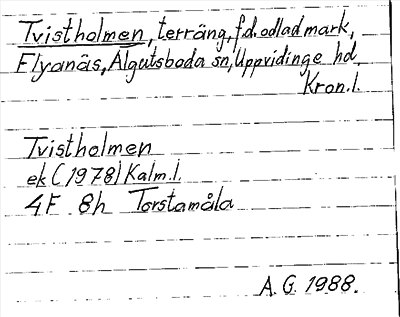 Tvistholmen, terräng, f.d. odlad mark,
Flyanäs, Algutsboda sn, Uppvidinge hd,
Kron.l.
Tvistholmen
ek (1978) Kalm.l.
4F 8h Torstamåla
A.G. 1988.